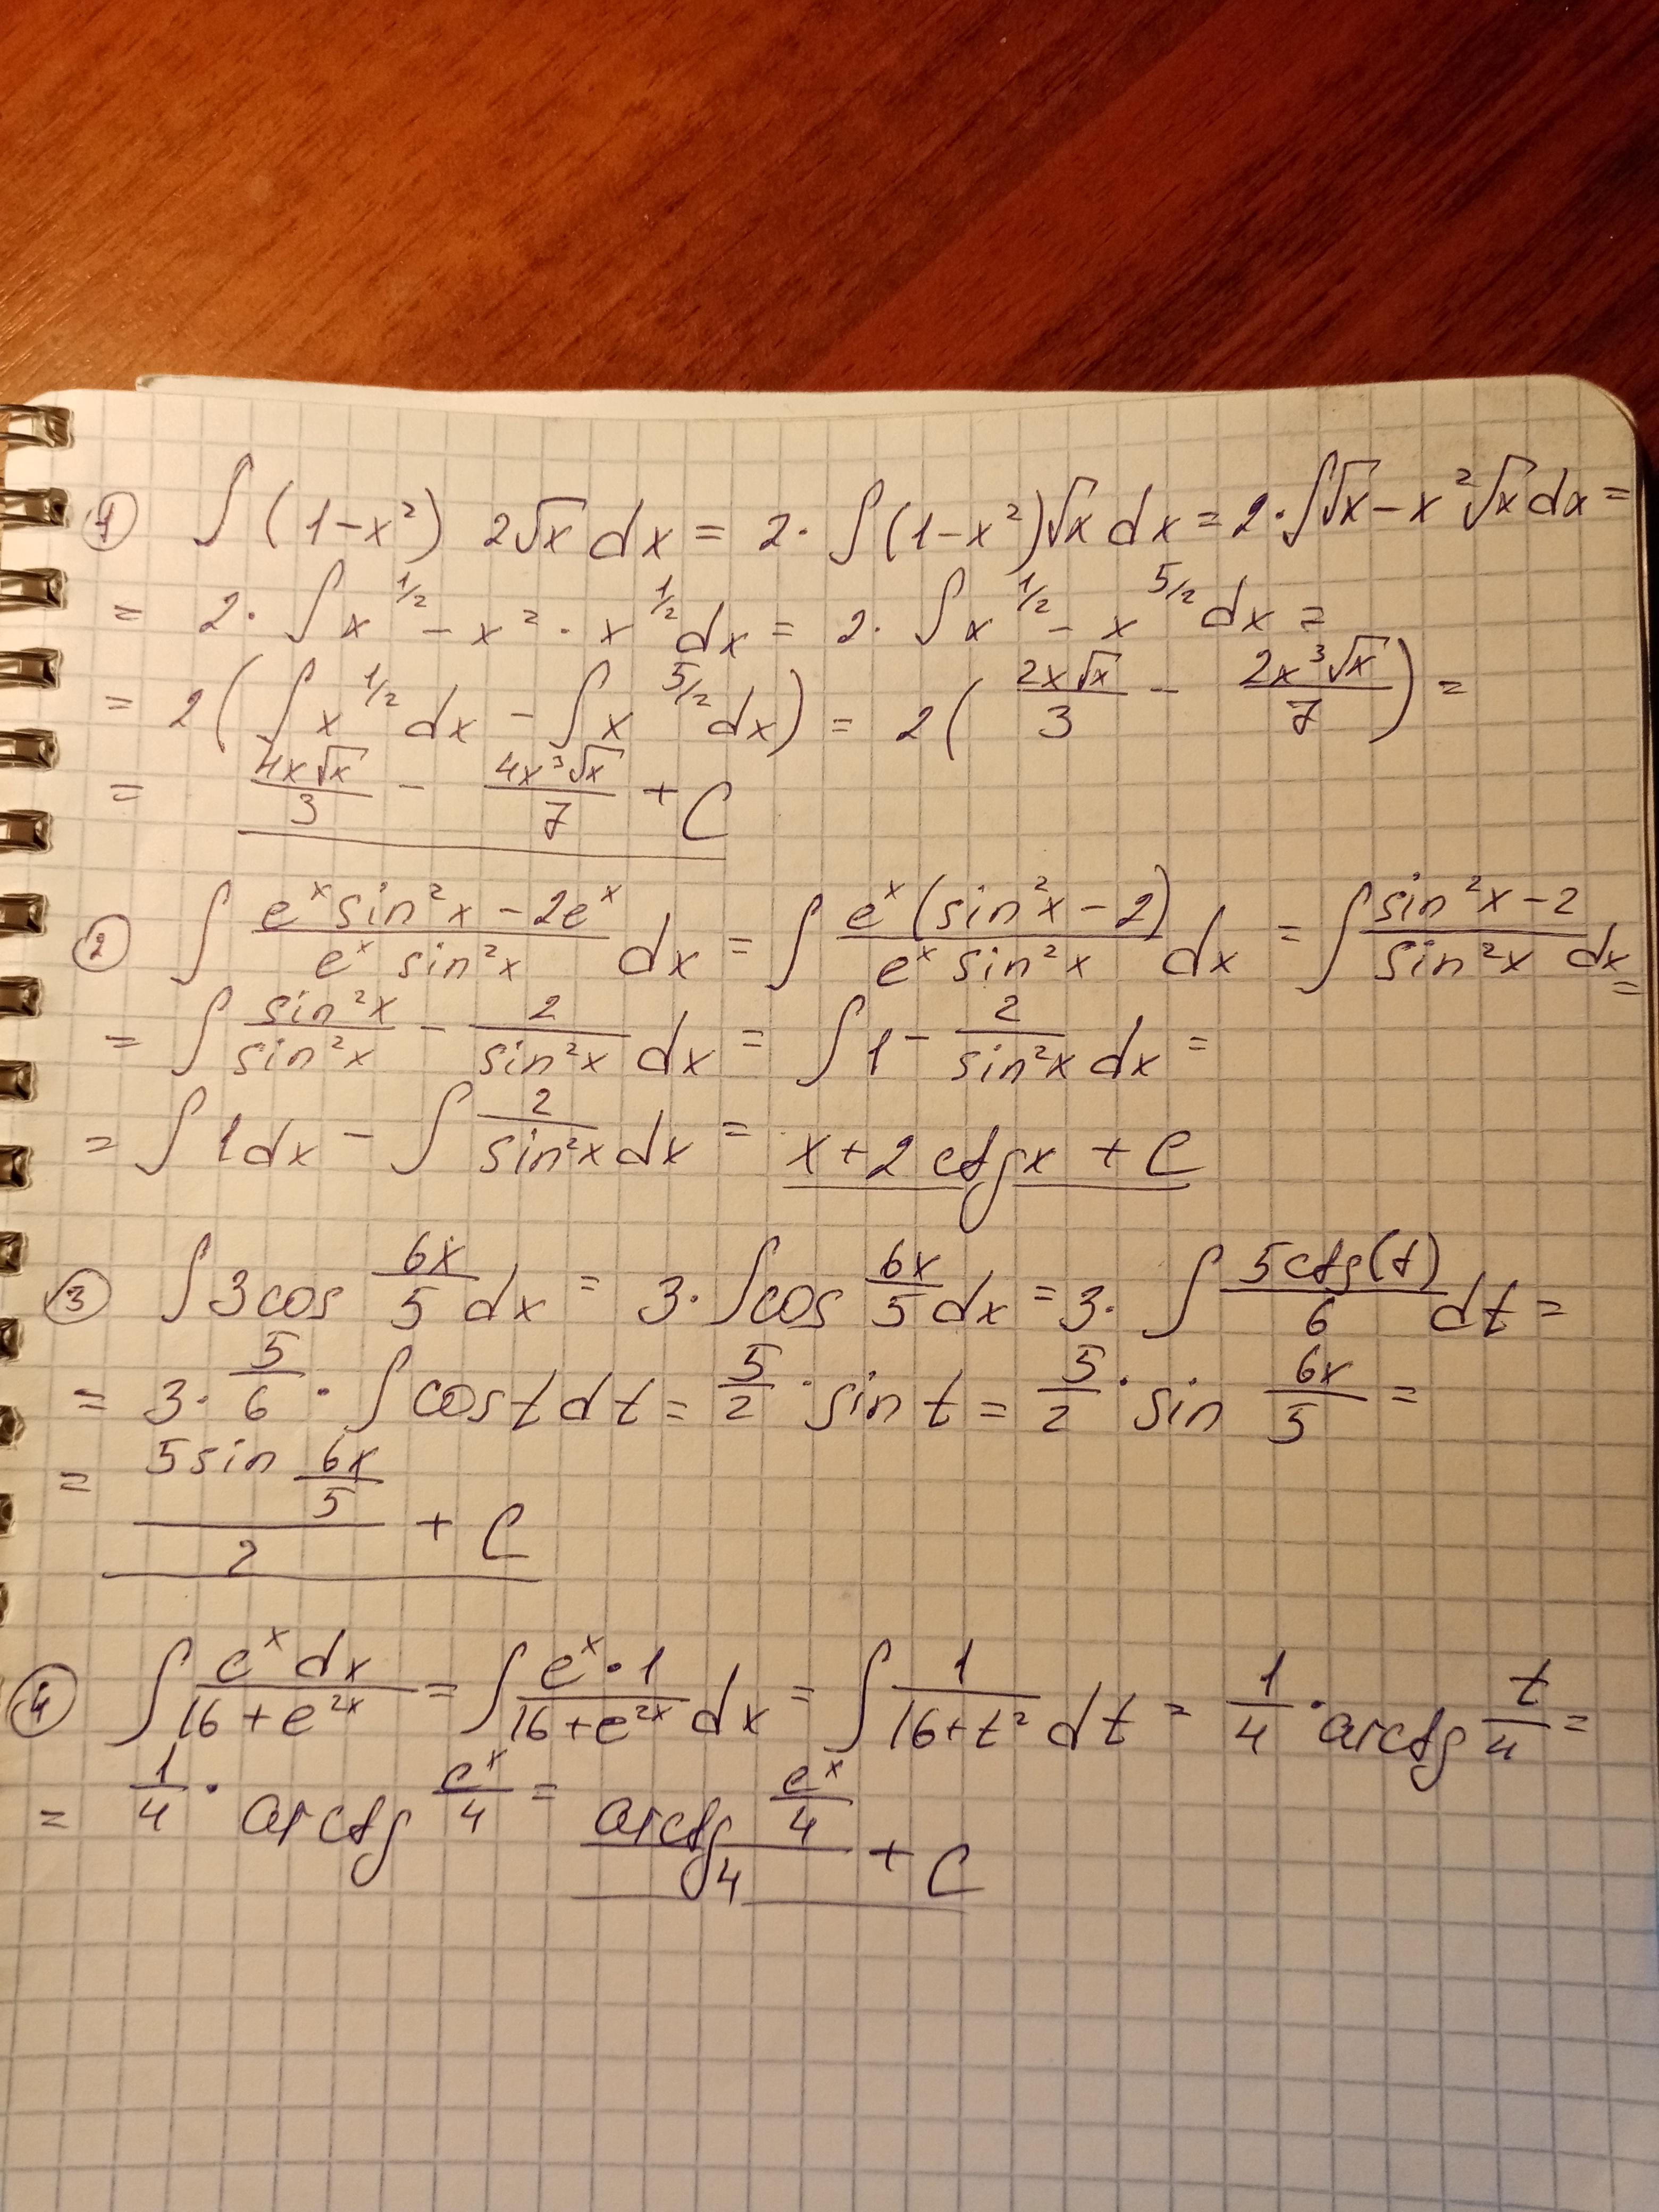 ① ∫(1-x²) 2√x dx = 2·∫(1-x²)√x dx = 2·∫√x - x²√x dx =
= 2·∫x^(1/2) - x²·x^(1/2) dx = 2·∫x^(1/2) - x^(5/2) dx =
= 2(∫x^(1/2) dx - ∫x^(5/2) dx) = 2(2x√x/3 - 2x³√x/7) =
= 4x√x/3 - 4x³√x/7 + C
② ∫(e^x sin²x - 2e^x)/(e^x sin²x) dx = ∫e^x(sin²x - 2)/(e^x sin²x) dx = ∫(sin²x - 2)/(sin²x) dx =
= ∫sin²x/sin²x - 2/sin²x dx = ∫1 - 2/sin²x dx =
= ∫1dx - ∫2/sin²x dx = x + 2ctgx + C
③ ∫3cos 6x/5 dx = 3·∫cos 6x/5 dx = 3·∫5ctg(t)/6 dt =
= 3·5/6·∫cos t dt = 5/2·sin t = 5/2·sin 6x/5 =
= (5sin 6x/5)/2 + C
④ ∫e^x dx/(16+e^(2x)) = ∫e^x·1/(16+e^(2x)) dx = ∫1/(16+t²) dt = 1/4·arctg t/4 =
= 1/4·arctg e^x/4 = (arctg e^x/4)/4 + C